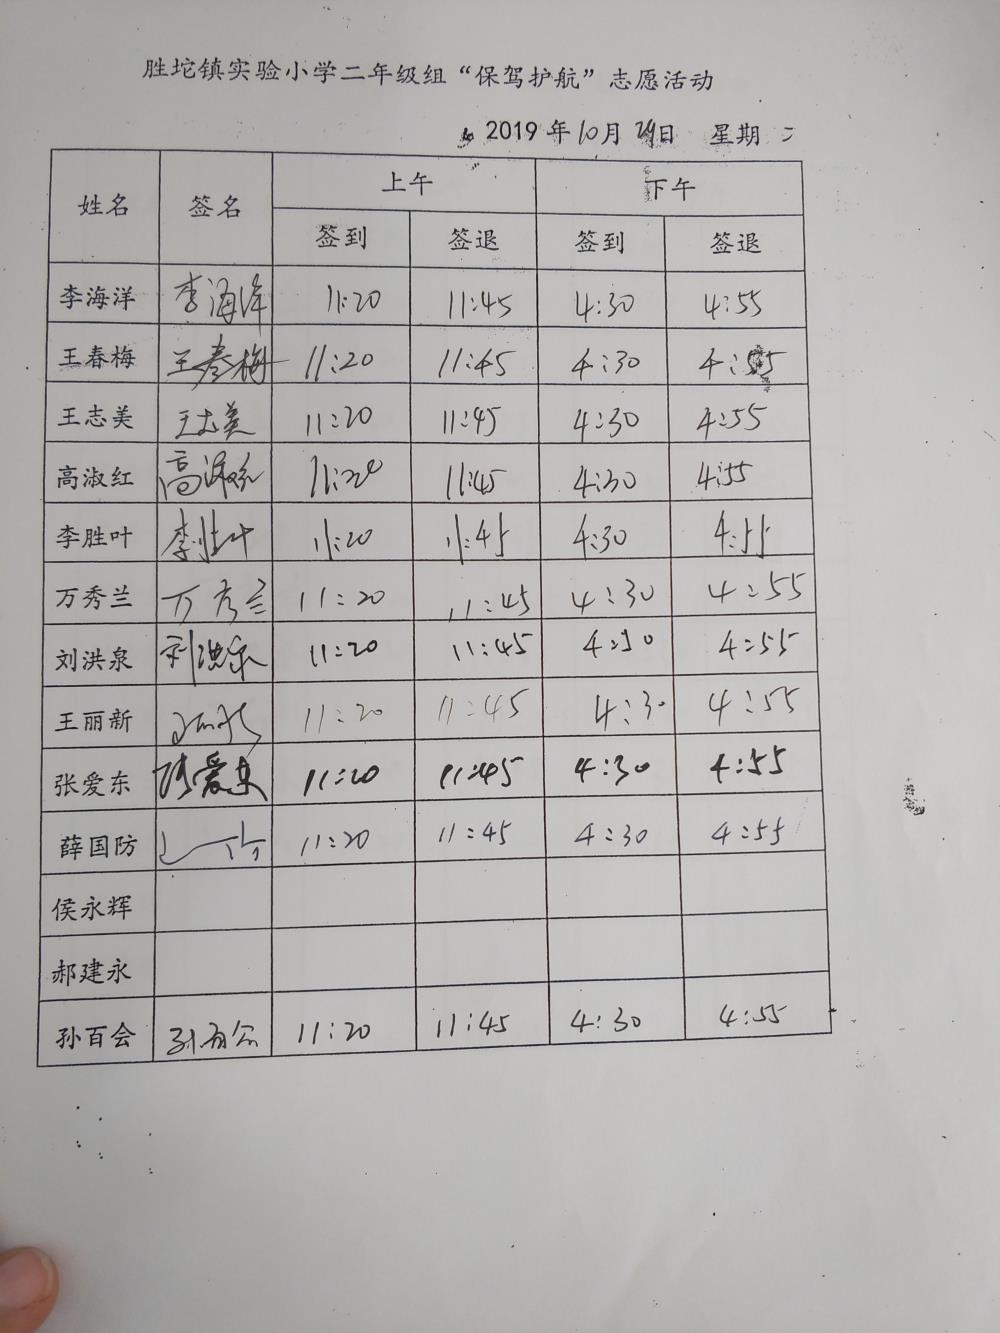 胜坨镇实验小学二年级组“保驾护航”志愿活动
2019年10月29日 星期二
姓名 签名 上午 下午
签到 签退 签到 签退
李海洋 李海洋 11:20 11:45 4:30 4:55
王春梅 王春梅 11:20 11:45 4:30 4:55
王志美 王志美 11:20 11:45 4:30 4:55
高淑红 高淑红 11:20 11:45 4:30 4:55
李胜叶 李胜叶 11:20 11:45 4:30 4:55
万秀兰 万秀兰 11:20 11:45 4:30 4:55
刘洪泉 刘洪泉 11:20 11:45 4:30 4:55
王丽新 11:20 11:45 4:30 4:55
张爱东 张爱东 11:20 11:45 4:30 4:55
薛国防 11:20 11:45 4:30 4:55
侯永辉
郝建永
孙百会 孙百会 11:20 11:45 4:30 4:55